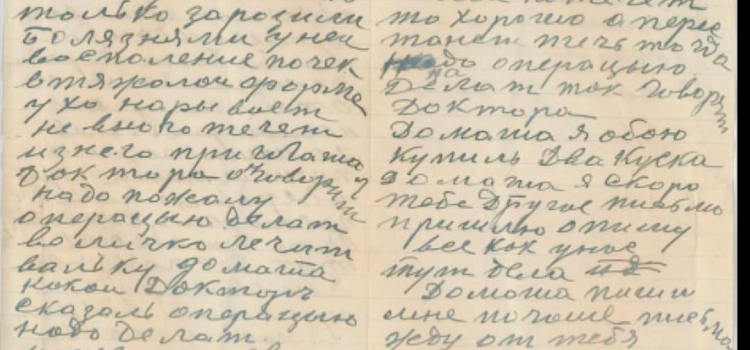 только зарозили
болязнями у ней
восполение почек
в тяжолой форме
ухо нарывоет
не много течет
из него приглаша
доктора говорит
надо пожалу
операцыю делат
во личко лечит
ваньку домаша
какой Докторъ
сказалъ операцыю
надо делат
то хорошо а перес
танет течь тогда
надо операцыю
делат так говорят
Доктора
Домаша я обою
купилъ два куска
домаша я скоро
тебе другое письмо
пришлю опишу
все как у нас
тут дела
Домаша пиши
мне почаще письма
жду от тебя